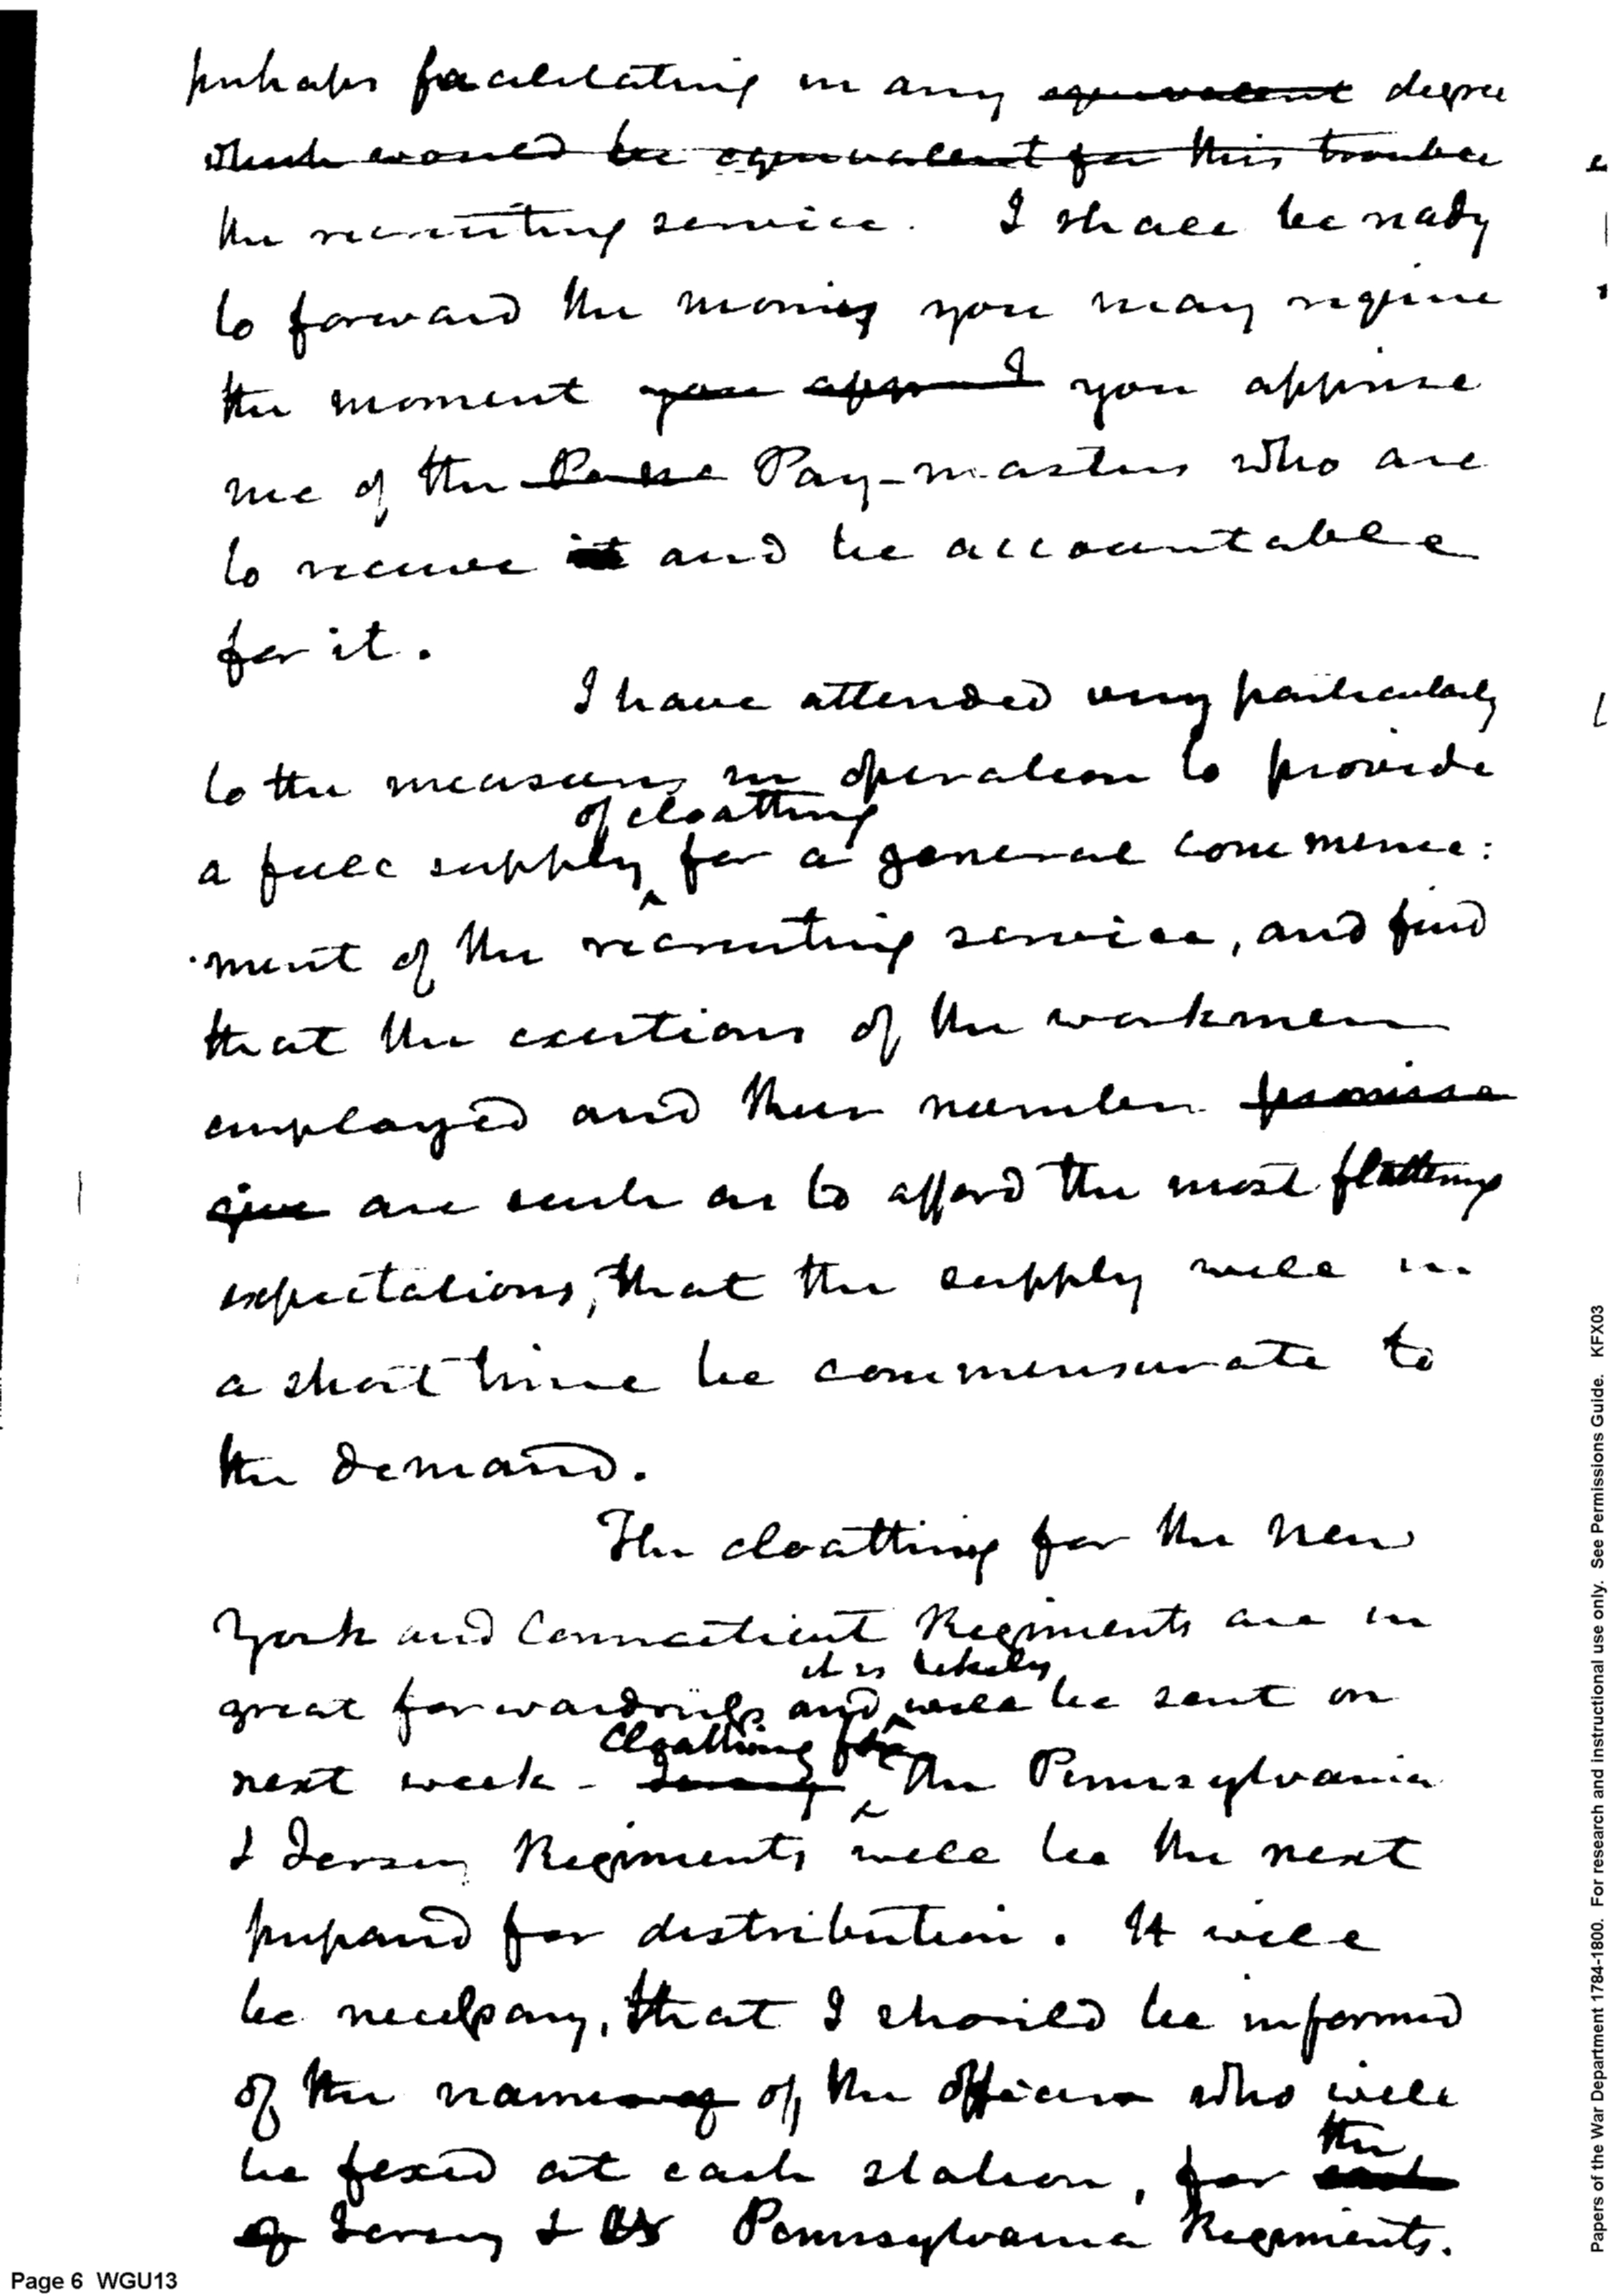 perhaps facilitating in any equivalent degree
which would be equivalent for this trouble
the recruiting service. I shall be ready
to forward the monies you may require
the moment you app I you apprise
me of the Pay-masters who are
to receive it and be accountable
for it.
I have attended very particularly
to the measures in operation to provide
of cloathing
a full supply for a general commence:
ment of the recruiting service, and find
that the exertions of the workmen
employed and their number promise
give are such as to afford the most flattering
expectations, that the supply will in
a short time be commensurate to
the demand.
The cloathing for the New
York and Connecticut Regiments are in
it is likely
great forwardness and will be sent on
Cloathing for
next week - Jersey the Pennsylvania
& Jersey Regiments will be the next
prepared for distribution. It will
be necessary, that I should be informed
of the names of of the officers who will
the
be fixed at each station, for each
of Jersey & Pennsylvania Regiments.
Page 6 WGU13
Papers of the War Department 1784-1800. For research and instructional use only. See Permissions Guide. KFX03